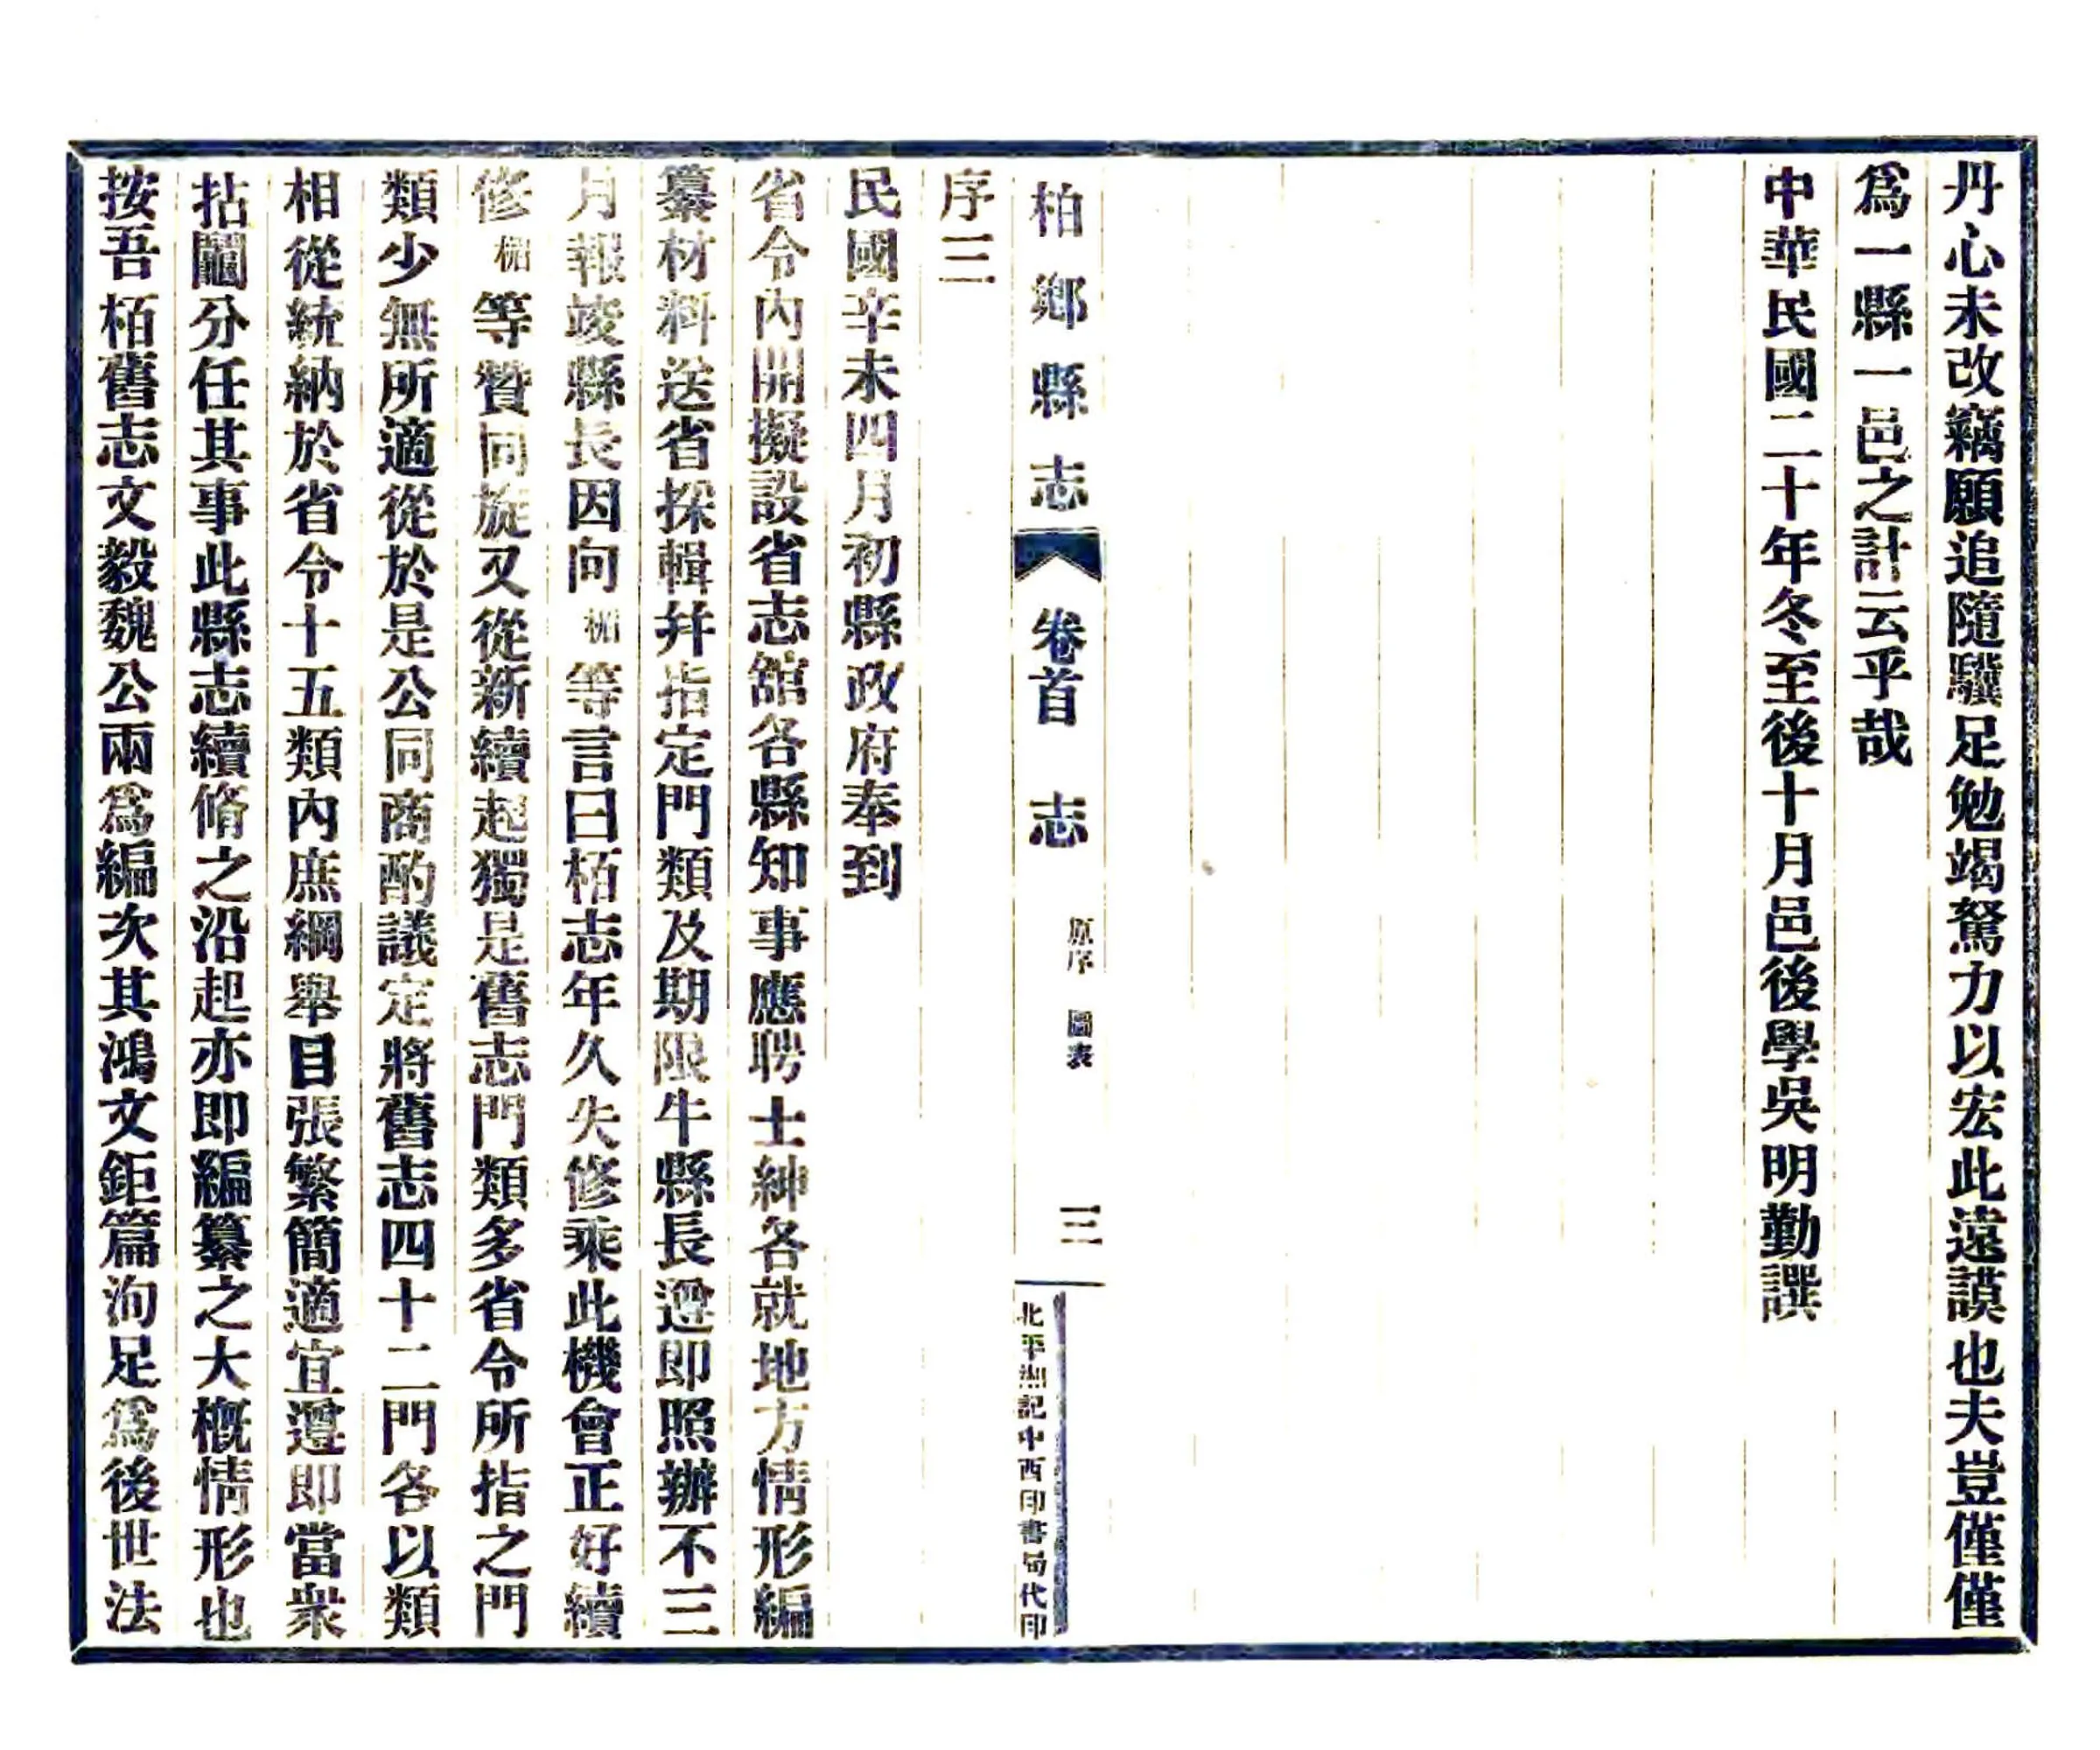 丹心未改竊願追隨驥足勉竭駑力以宏此遠謨也夫豈僅僅
爲一縣一邑之計云乎哉
中華民國二十年冬至後十月邑後學吳明勤譔
柏鄉縣志
卷首 志
原序 圖表
三
北平 記中西印書局代印
序三
民國辛未四月初縣政府奉到
省令內開擬設省志舘各縣知事應聘士紳各就地方情形編
纂材料送省採輯幷指定門類及期限牛縣長遵即照辦不三
月報竣縣長因向 等言曰栢志年久失修乘此機會正好續
修 等贊同旋又從新續起獨是舊志門類多省令所指之門
類少無所適從於是公同商酌議定將舊志四十二門各以類
相從統納於省令十五類內庶綱舉目張繁簡適宜遵即當衆
拈鬮分任其事此縣志續脩之沿起亦即編纂之大槪情形也
按吾栢舊志文毅魏公兩爲編次其鴻文鉅篇洵足爲後世法